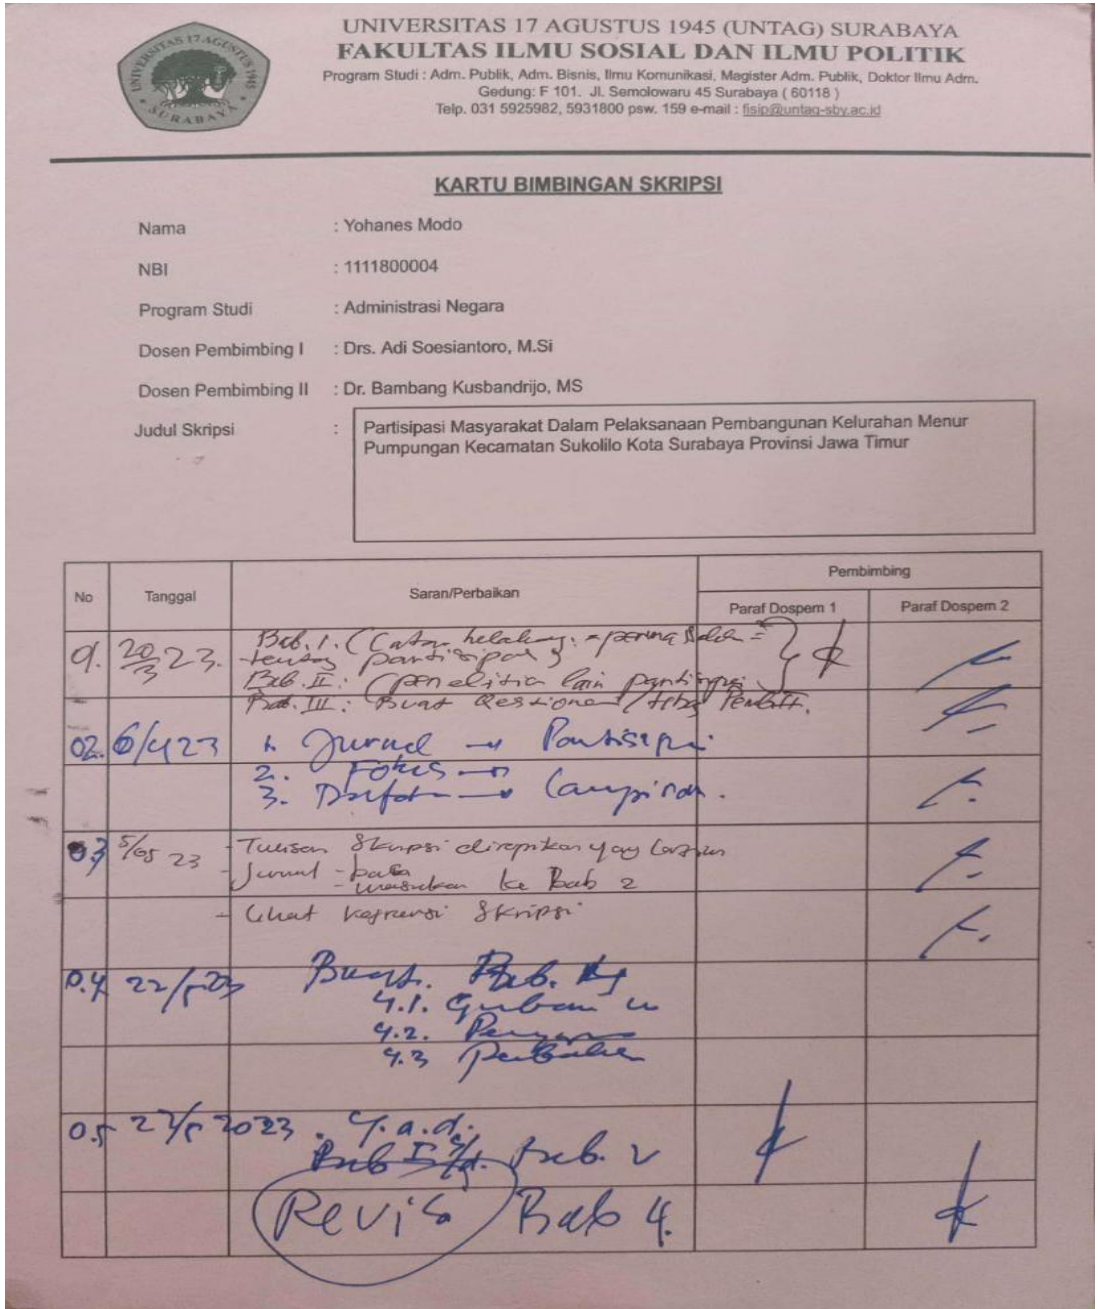 UNIVERSITAS 17 AGUSTUS 1945
SURABAYA
UNIVERSITAS 17 AGUSTUS 1945 (UNTAG) SURABAYA
FAKULTAS ILMU SOSIAL DAN ILMU POLITIK
Program Studi : Adm. Publik, Adm. Bisnis, Ilmu Komunikasi, Magister Adm. Publik, Doktor Ilmu Adm.
Gedung: F 101. Jl. Semolowaru 45 Surabaya ( 60118 )
Telp. 031 5925982, 5931800 psw. 159 e-mail : fisip@untag-sby.ac.id
KARTU BIMBINGAN SKRIPSI
Nama : Yohanes Modo
NBI : 1111800004
Program Studi : Administrasi Negara
Dosen Pembimbing I : Drs. Adi Soesiantoro, M.Si
Dosen Pembimbing II : Dr. Bambang Kusbandrijo, MS
Judul Skripsi : Partisipasi Masyarakat Dalam Pelaksanaan Pembangunan Kelurahan Menur
Pumpungan Kecamatan Sukolilo Kota Surabaya Provinsi Jawa Timur
No Tanggal Saran/Perbaikan Pembimbing
Paraf Dospem 1 Paraf Dospem 2
20/3 23. Bab. 1. (Latar belakang
tentang partisipasi
Bab. II: (penelitian lain
Bab. III: Buat
02. 6/4 23 1. Jurnal → Partisipasi
2. Fokus →
3. → Lampiran.
03 5/05 23 - Tulisan Skripsi dirapikan yang
- Jurnal - baca
- masukan ke Bab 2
- Lihat Skripsi
0.4 Buat. Bab.
4.1.
4.2.
4.3
0.5 2023.
Bab. V
Revisi Bab 4.